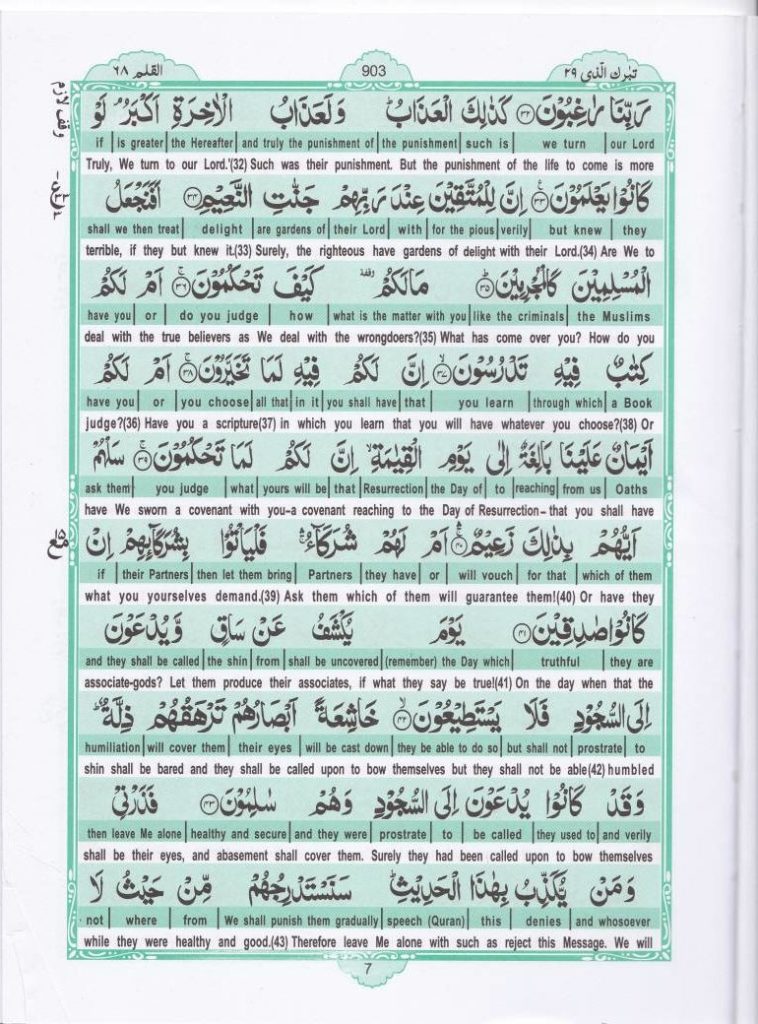 تبٰرك الّذى ٢٩ 903 القلم ٦٨
رَبِّنَا رٰغِبُوْنَ ﴿٣٢﴾ كَذٰلِكَ الْعَذَابُ ؕ وَلَعَذَابُ الْاٰخِرَةِ اَكْبَرُ ۘ لَوْ
our Lord | we turn | such is | the punishment | and truly the punishment of | the Hereafter | is greater | if
Truly, We turn to our Lord.'(32) Such was their punishment. But the punishment of the life to come is more
وقف لازم
كَانُوْا يَعْلَمُوْنَ ﴿٣٣﴾ اِنَّ لِلْمُتَّقِيْنَ عِنْدَ رَبِّهِمْ جَنّٰتِ النَّعِيْمِ ﴿٣٤﴾ اَفَنَجْعَلُ
they | but knew | verily | for the pious | with | their Lord | are gardens of | delight | shall we then treat
terrible, if they but knew it.(33) Surely, the righteous have gardens of delight with their Lord.(34) Are We to
الْمُسْلِمِيْنَ كَالْمُجْرِمِيْنَ ﴿٣٥﴾ مَا لَكُمْ وقفة كَيْفَ تَحْكُمُوْنَ ﴿٣٦﴾ اَمْ لَكُمْ
the Muslims | like the criminals | what is the matter with you | how | do you judge | or | have you
deal with the true believers as We deal with the wrongdoers?(35) What has come over you? How do you
كِتٰبٌ فِيْهِ تَدْرُسُوْنَ ﴿٣٧﴾ اِنَّ لَكُمْ فِيْهِ لَمَا تَخَيَّرُوْنَ ﴿٣٨﴾ اَمْ لَكُمْ
a Book | through which | you learn | that | you shall have | in it | all that | you choose | or | have you
judge?(36) Have you a scripture(37) in which you learn that you will have whatever you choose?(38) Or
اَيْمَانٌ عَلَيْنَا بَالِغَةٌ اِلٰى يَوْمِ الْقِيٰمَةِ ۙ اِنَّ لَكُمْ لَمَا تَحْكُمُوْنَ ﴿٣٩﴾ سَلْهُمْ
Oaths | from us | reaching | to | the Day of | Resurrection | that | yours will be | what | you judge | ask them
have We sworn a covenant with you–a covenant reaching to the Day of Resurrection– that you shall have
اَيُّهُمْ بِذٰلِكَ زَعِيْمٌ ﴿٤٠﴾ اَمْ لَهُمْ شُرَكَآءُ ۚ فَلْيَاْتُوْا بِشُرَكَآئِهِمْ اِنْ
which of them | for that | will vouch | or | they have | Partners | then let them bring | their Partners | if
what you yourselves demand.(39) Ask them which of them will guarantee them!(40) Or have they
كَانُوْا صٰدِقِيْنَ ﴿٤١﴾ يَوْمَ يُكْشَفُ عَنْ سَاقٍ وَّيُدْعَوْنَ
they are | truthful | (remember) the Day which | shall be uncovered | from | the shin | and they shall be called
associate-gods? Let them produce their associates, if what they say be true!(41) On the day when that the
اِلَى السُّجُوْدِ فَلَا يَسْتَطِيْعُوْنَ ﴿٤٢﴾ خَاشِعَةً اَبْصَارُهُمْ تَرْهَقُهُمْ ذِلَّةٌ ؕ
to | prostrate | but shall not | they be able to do so | will be cast down | their eyes | will cover them | humiliation
shin shall be bared and they shall be called upon to bow themselves but they shall not be able(42) humbled
وَقَدْ كَانُوْا يُدْعَوْنَ اِلَى السُّجُوْدِ وَهُمْ سٰلِمُوْنَ ﴿٤٣﴾ فَذَرْنِيْ
and verily | they used to | be called | to | prostrate | and they were | healthy and secure | then leave Me alone
shall be their eyes, and abasement shall cover them. Surely they had been called upon to bow themselves
وَمَنْ يُّكَذِّبُ بِهٰذَا الْحَدِيْثِ ؕ سَنَسْتَدْرِجُهُمْ مِّنْ حَيْثُ لَا
and whosoever | denies | this | speech (Quran) | We shall punish them gradually | from | where | not
while they were healthy and good.(43) Therefore leave Me alone with such as reject this Message. We will
7